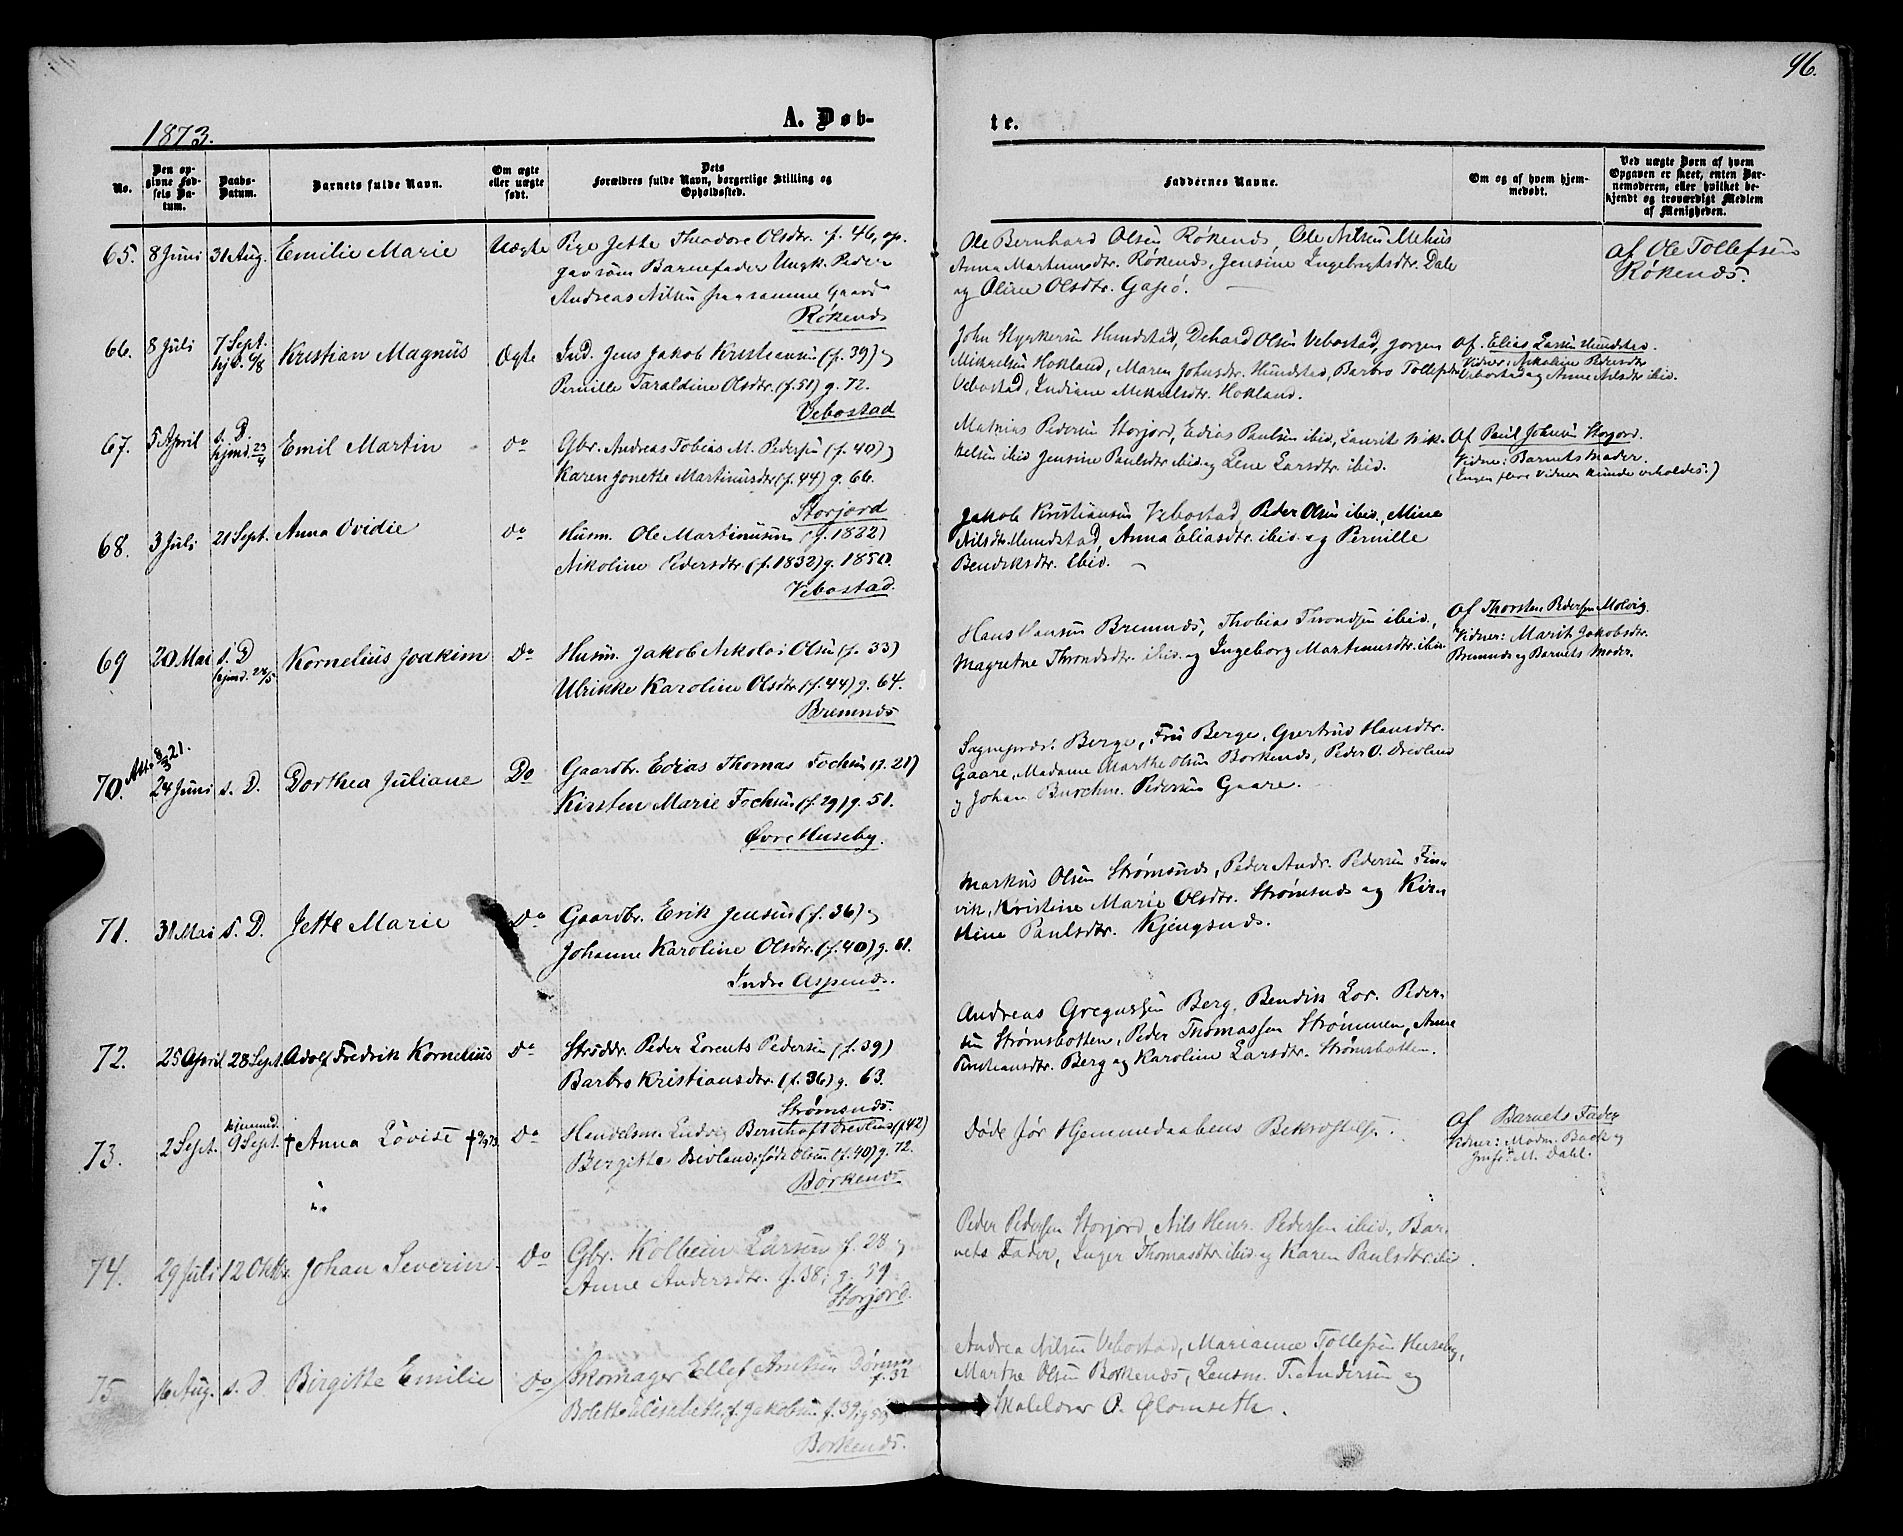 96.
1873.
A. Døb-
te.
No.
Den opgivne Fødsels Datum.
Daabs-Datum.
Barnets fulde Navn.
Om ægte eller uægte født.
Dets Forældres fulde Navn, borgerlige Stilling og Opholdssted.
Faddernes Navne.
Om og af hvem hjemmedøbt.
Ved uægte Børn af hvem Opgaven er skeet, enten Barnemoderen, eller hvilket bekjendt og troværdigt Medlem af Menigheden.
65. 8 Juni 31 Aug. Emilie Marie Uægte Pige Jette Theodore Olsdtr. f. 46, op-
gav som Barnefader Ungk. Peder
Andreas Nilsen fra samme Gaard
Røkenes
Ole Bernhard Olsen Røkenes, Ole Nilsen
Anna Martinusdtr. Røkenes, Jensine Ingebrigtsdtr. Dale
og Oline Olsdtr.
af Ole Tollefsen
Røkenes.
66. 8 Juli 7 Sept. Kristian Magnus Ægte Ind. Jens Jakob Kristiansen (f. 39) og
Pernille Taraldine Olsdtr. (f. 51) g. 72.
Vebostad
John Styrkersen Hundstad, Dehard Olsen Vebostad, Jørgen
Mikkelsen Hokland, Maren Johnsdtr. Hundstad, Barbro Tollefsdtr.
Vebostad, Indiane Mikkelsdtr. Hokland.
af. Elias Larsen Hundstad.
Vidner: Nikoline Pedersdtr.
Vebostad og Anne Nilsdtr. ibid.
67. 5 April s. D. hjmd. 23/4 Emil Martin do Gbr. Andreas Tobias M. Pedersen (f. 40) og
Karen Jonette Martinusdtr (f. 44) g. 66.
Storjord
Mathias Pedersen Storjord, Edias Paulsen ibid, Laurits Mik-
kelsen ibid Jensine Paulsdtr. ibid. og Lene Larsdtr. ibid.
Af Paul Johnsen Storjord.
Vidne: Barnets Moder.
(Ingen flere Vidner kunde erholdes.)
68. 3 Juli 21 Sept. Anna Ovidie do Husm. Ole Martinussen (f. 1822)
Nikoline Pedersdtr. (f. 1832) g. 1850.
Vebostad.
Jakob Kristiansen Vebostad, Peder Olsen ibid., Mine
Nilsdtr. Hundstad, Anna Eliasdtr. ibid. og Pernille
Bendiksdtr. Ibid.
69 20 Mai s. D Kornelius Joakim Do Husm. Jakob Nikolai Olsen (f. 33)
Ulrikke Karoline Olsdtr. (f. 44) g. 64.
Bremnes
Hans Hansen Bremnes, Thobias Throndsen ibid.,
Magrethe Throndsdtr. ibid. og Ingeborg Martinusdtr. ibid.
Af Thorsten Pedersen Molvig.
Vidner: Marit Jakobsdtr.
Bremnes og Barnets Moder.
70. 24 Juni s. D. Dorthea Juliane Do Gaardbr. Edias Thomas Fochsen (f. 28)
Kirsten Marie Fochsen (f. 29) g. 51.
Øvre Huseby.
Sognepræst Berge, Fru Berge, Gjertrud Hansdtr.
Gaare, Madame Marthe Olsen Borkenes, Peder O. Drevland
og Johan Burchm. Pedersen Gaare.
71. 31 Mai s. D. Jette Marie Do Gaardbr. Erik Jensen (f. 36) og
Johanne Karoline Olsdtr. (f. 40) g. 61.
Indre Aspenes.
Markus Olsen Strømsnes, Peder Andr. Pedersen Fin-
vik, Kristine Marie Olsdtr. Strømsnes og Kir-
stine Paulsdtr. Kjengsnes.
72. 25 April 28 Sept. Adolf Fredrik Kornelius Do Strødr. Peder Lorents Pedersen (f. 39)
Barbro Kristiansdtr. (f. 36) g. 63.
Strømsnes.
Andreas Gregussen Berg, Bendik Lor. Peder-
sen Strømsbotten, Peder Thomassen Strømmen, Anne
Kristiansdtr. Berg og Karoline Larsdtr. Strømsbotten.
73. 2 Sept. hjemmed. 9 Sept. † Anna Lovise Do Handelsm. Ludvig Bernhoft Drevland (f. 42)
Bergitte Drevland, født Olsen (f. 40) g. 72.
Borkenes
Døde før Hjemmedaabens Bekræftelse.
Af Barnets Fader
Vidner: Madm. Back og
Jmfr. M. Dahl.
74. 29 Juli 12 Oktbr Johan Severin Do Gbr. Kolbein Larsen f. 28 og
Anne Andersdtr. f. 38; g. 59
Storjord.
Peder Pedersen Storjord, Nils Henr. Pedersen ibid., Bar-
nets Fader, Inger Thomasdtr. ibid. og Karen Paulsdtr. ibid.
75 16 Aug. s. D Birgitte Emilie Do Skomager Ellef Arntsen Dønnes
f. 32
Bolette Elisabeth, f. Jakobsen f. 39, g 59
Borkenes.
Andrea Nilsen Vebostad, Marianne Tollefsen Huseby,
Marthe Olsen Borkenes, Lensm. T. Andersen og
Skolelærer O. Glomseth.